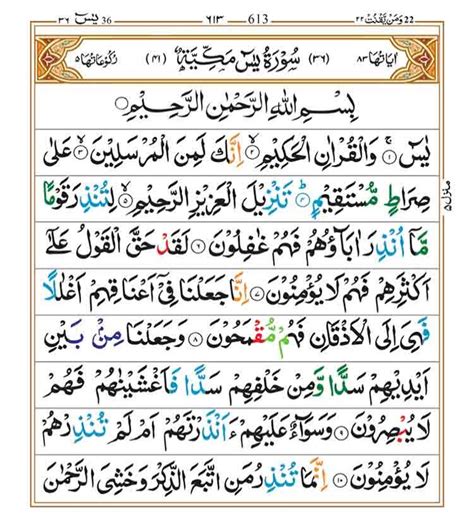 يٰسٓ 36 ٣٦ ٦١٣ 613 وَمَن يَّقْنُتْ 22 ٢٢
اٰيَاتُهَا ٨٣ (٣٦) سُوْرَةُ يٰسٓ مَكِّيَّةٌ (٤١) رُكُوْعَاتُهَا ٥
بِسْمِ اللهِ الرَّحْمٰنِ الرَّحِيْمِ
يٰسٓ ۝١ وَالْقُرْاٰنِ الْحَكِيْمِ ۝٢ اِنَّكَ لَمِنَ الْمُرْسَلِيْنَ ۝٣ عَلٰى
صِرَاطٍ مُّسْتَقِيْمٍ ۝٤ تَنْزِيْلَ الْعَزِيْزِ الرَّحِيْمِ ۝٥ لِتُنْذِرَ قَوْمًا
مَّآ اُنْذِرَ اٰبَآؤُهُمْ فَهُمْ غٰفِلُوْنَ ۝٦ لَقَدْ حَقَّ الْقَوْلُ عَلٰٓى
اَكْثَرِهِمْ فَهُمْ لَا يُؤْمِنُوْنَ ۝٧ اِنَّا جَعَلْنَا فِيْٓ اَعْنَاقِهِمْ اَغْلٰلًا
فَهِيَ اِلَى الْاَذْقَانِ فَهُمْ مُّقْمَحُوْنَ ۝٨ وَجَعَلْنَا مِنْۢ بَيْنِ
اَيْدِيْهِمْ سَدًّا وَّمِنْ خَلْفِهِمْ سَدًّا فَاَغْشَيْنٰهُمْ فَهُمْ
لَا يُبْصِرُوْنَ ۝٩ وَسَوَآءٌ عَلَيْهِمْ ءَاَنْذَرْتَهُمْ اَمْ لَمْ تُنْذِرْهُمْ
لَا يُؤْمِنُوْنَ ۝١٠ اِنَّمَا تُنْذِرُ مَنِ اتَّبَعَ الذِّكْرَ وَخَشِيَ الرَّحْمٰنَ
منزل ٥